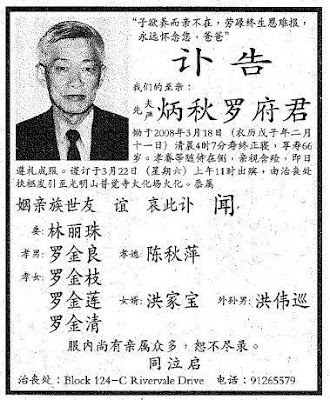 “子欲养而亲不在，劳碌终生恩难报，
永远怀念您，爸爸”
讣告
我们的至亲：
先夫严 炳秋罗府君
恸于2008年3月18日（农历戊子年二月
十一日）清晨4时7分寿终正寝，享寿66
岁。孝眷等随侍在侧，亲视含殓，即日
遵礼成服。谨订于3月22日（星期六）上午11时出殡，由治丧处
扶柩发引至光明山普觉寺火化场火化。忝属
姻亲族世友 谊 哀此讣 闻
妻：林丽珠
孝男：罗金良 孝媳：陈秋萍
孝女：罗金枝
罗金莲 女婿：洪家宝 外孙男：洪伟巡
罗金清
服内尚有亲属众多，恕不尽录。
同泣启
治丧处：Block 124-C Rivervale Drive 电话：91265579